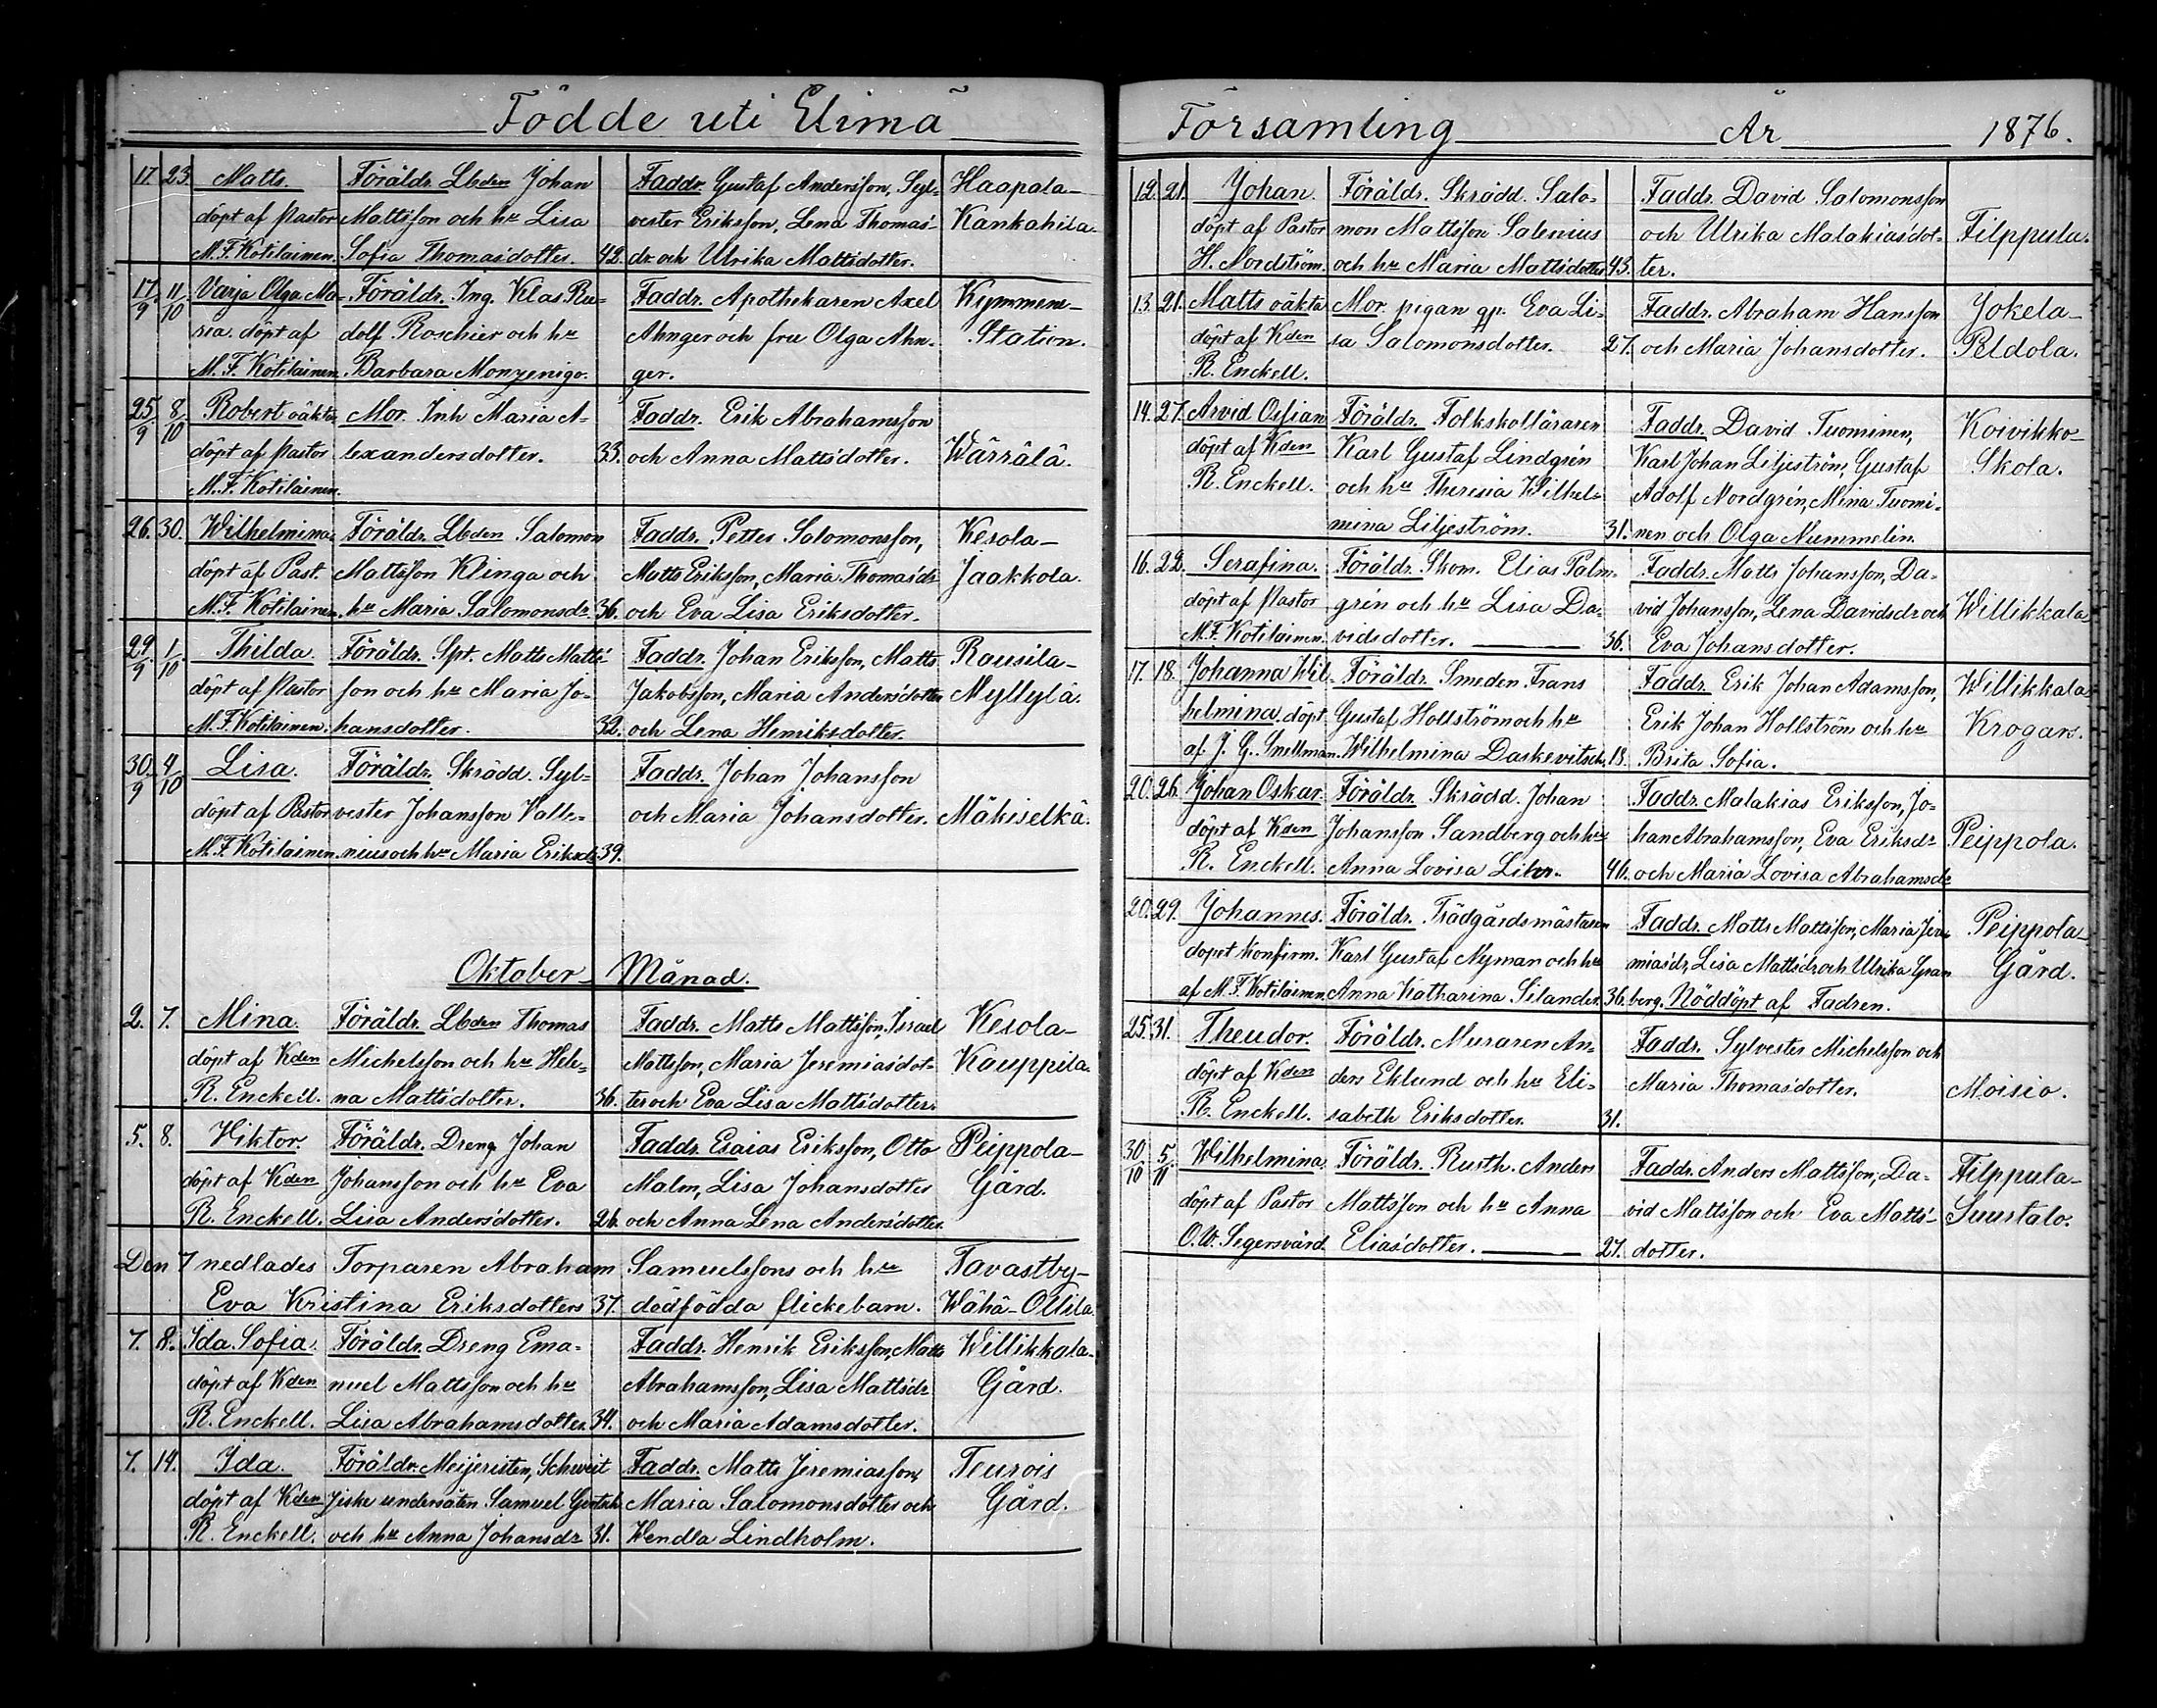 Födde uti Elimä
17. 23. Matts. Föräldr. Lbden Johan Faddr. Gustaf Andersson, Syl- Haapala-
döpt af Pastor Mattsson och hu Lisa vester Eriksson, Lena Thomas- Kankahila.
M. F. Kotilainen. Sofia Thomasdotter. 42. dr. och Ulrika Mattsdotter.
17/9 11/10 Varja Olga Ma- Föräldr. Ing. Klas Ru- Faddr. Apothekaren Axel Kymmene-
ria. döpt af dolf Roschier och hu Ahnger och fru Olga Ahn- Station.
M. F. Kotilainen. Barbara Monzenigo. ger.
25/9 8/10 Robert oäkta Mor. Inh Maria A- Faddr. Erik Abrahamsson
döpt af Pastor lexandersdotter. 33. och Anna Mattsdotter. Wärrälä.
M. F. Kotilainen.
26. 30. Wilhelmina. Föräldr. Lbden Salomon Faddr. Petter Salomonsson, Kesola-
döpt af Past. Mattsson Klinga och Matts Eriksson, Maria Thomasdr Jaakkola.
M. F. Kotilainen. hu Maria Salomonsdr. 36. och Eva Lisa Eriksdotter.
29/9 1/10 Thilda. Föräldr. Spt. Matts Matts- Faddr. Johan Eriksson, Matts Rausila-
döpt af Pastor son och hu Maria Jo- Jakobsson, Maria Andersdotter Myllylä.
M. F. Kotilainen. hansdotter. 32. och Lena Henriksdotter.
30/9 4/10 Lisa. Föräldr. Skrädd. Syl- Faddr. Johan Johansson
döpt af Pastor vester Johansson Valle- och Maria Johansdotter. Mäkiselkä.
M. F. Kotilainen. nius och hu Maria Eriksdr 39.
Oktober Månad.
2. 7. Mina. Föräldr. Lbden Thomas Faddr. Matts Mattsson, Israel Kesola-
döpt af Kden Michelsson och hu Hele- Mattsson, Maria Jeremiasdot- Kauppila.
R. Enckell. na Mattsdotter. 36. ter och Eva Lisa Mattsdotter.
5. 8. Viktor. Föräldr. Dreng Johan Faddr. Esaias Eriksson, Otto Peippola-
döpt af Kden Johansson och hu Eva Malm, Lisa Johansdotter Gård.
R. Enckell. Lisa Andersdotter. 26. och Anna Lena Andersdotter.
Den 7 nedlades Torparen Abraham Samuelssons och hu Tavastby-
Eva Kristina Eriksdotters 37. dödfödda flickebarn. Wähä-Ollila.
7. 8. Ida Sofia. Föräldr. Dreng Ema- Faddr. Henrik Eriksson, Matts Willikkala-
döpt af Kden nuel Mattsson och hu Abrahamsson, Lisa Mattsdr Gård.
R. Enckell. Lisa Abrahamsdotter. 34. och Maria Adamsdotter.
7. 14. Ida. Föräldr. Meijeristen, Schweit Faddr. Matts Jeremiasson, Teurois
döpt af Kden ziske undersåten Samuel Maria Salomonsdotter och Gård.
R. Enckell. och hu Anna Johansdr 31. Wendla Lindholm.
Församling År 1876.
12. 21. Johan. Föräldr. Skrädd. Salo- Faddr. David Salomonsson
döpt af Pastor mon Mattsson Salenius och Ulrika Malakiasdot- Filppula.
H. Nordström. och hu Maria Mattsdotter 43. ter.
13. 21. Matts oäkta Mor. pigan qp. Eva Li- Faddr. Abraham Hansson Jokela-
döpt af Kden sa Salomonsdotter. 27. och Maria Johansdotter. Peldola.
R. Enckell.
14. 27. Arvid Ossian Föräldr. Folkskolläraren Faddr. David Tuominen, Koivikko-
döpt af Kden Karl Gustaf Lindgrén Karl Johan Liljeström, Gustaf Skola.
R. Enckell. och hu Theresia Wilhel- Adolf Nordgrén, Mina Tuomi-
mina Liljeström. 31. nen och Olga Nummelin.
16. 22. Serafina. Föräldr. Skom. Elias Palm- Faddr. Matts Johansson, Da-
döpt af Pastor grén och hu Lisa Da- vid Johansson, Lena Davidsdr och Willikkala
M. F. Kotilainen. vidsdotter. 36. Eva Johansdotter.
17. 18. Johanna Wil- Föräldr. Smeden Frans Faddr. Erik Johan Adamsson, Willikkala
helmina. döpt Gustaf Hollström och hu Erik Johan Hollström och hu Krogars.
af J. G. Snellman. Wilhelmina Daskevitsch. 18. Brita Sofia.
20. 26. Johan Oskar. Föräldr. Skrädd. Johan Faddr. Malakias Eriksson, Jo-
döpt af Kden Johansson Sandberg och hu han Abrahamsson, Eva Eriksdr Peippola.
R. Enckell. Anna Lovisa 40. och Maria Lovisa Abrahamsdr
20. 29. Johannes. Föräldr. Trädgårdsmästaren Faddr. Matts Mattsson, Maria Jere Peippola-
dopet konfirm. Karl Gustaf Nyman och hu miasdr, Lisa Mattsdr och Ulrika Gran Gård.
af M. F. Kotilainen. Anna Katharina Silander. 36. berg. Nöddöpt af Fadren.
25. 31. Theudor. Föräldr. Muraren An- Faddr. Sylvester Michelsson och
döpt af Kden ders Eklund och hu Eli- Maria Thomasdotter. Moisio.
R. Enckell. sabeth Eriksdotter. 31.
30/10 5/11 Wilhelmina. Föräldr. Rusth. Anders Faddr. Anders Mattsson, Da- Filppula-
döpt af Pastor Mattsson och hu Anna vid Mattsson och Eva Matts- Suurtalo.
O. W. Segersvärd. Eliasdotter. 27. dotter.